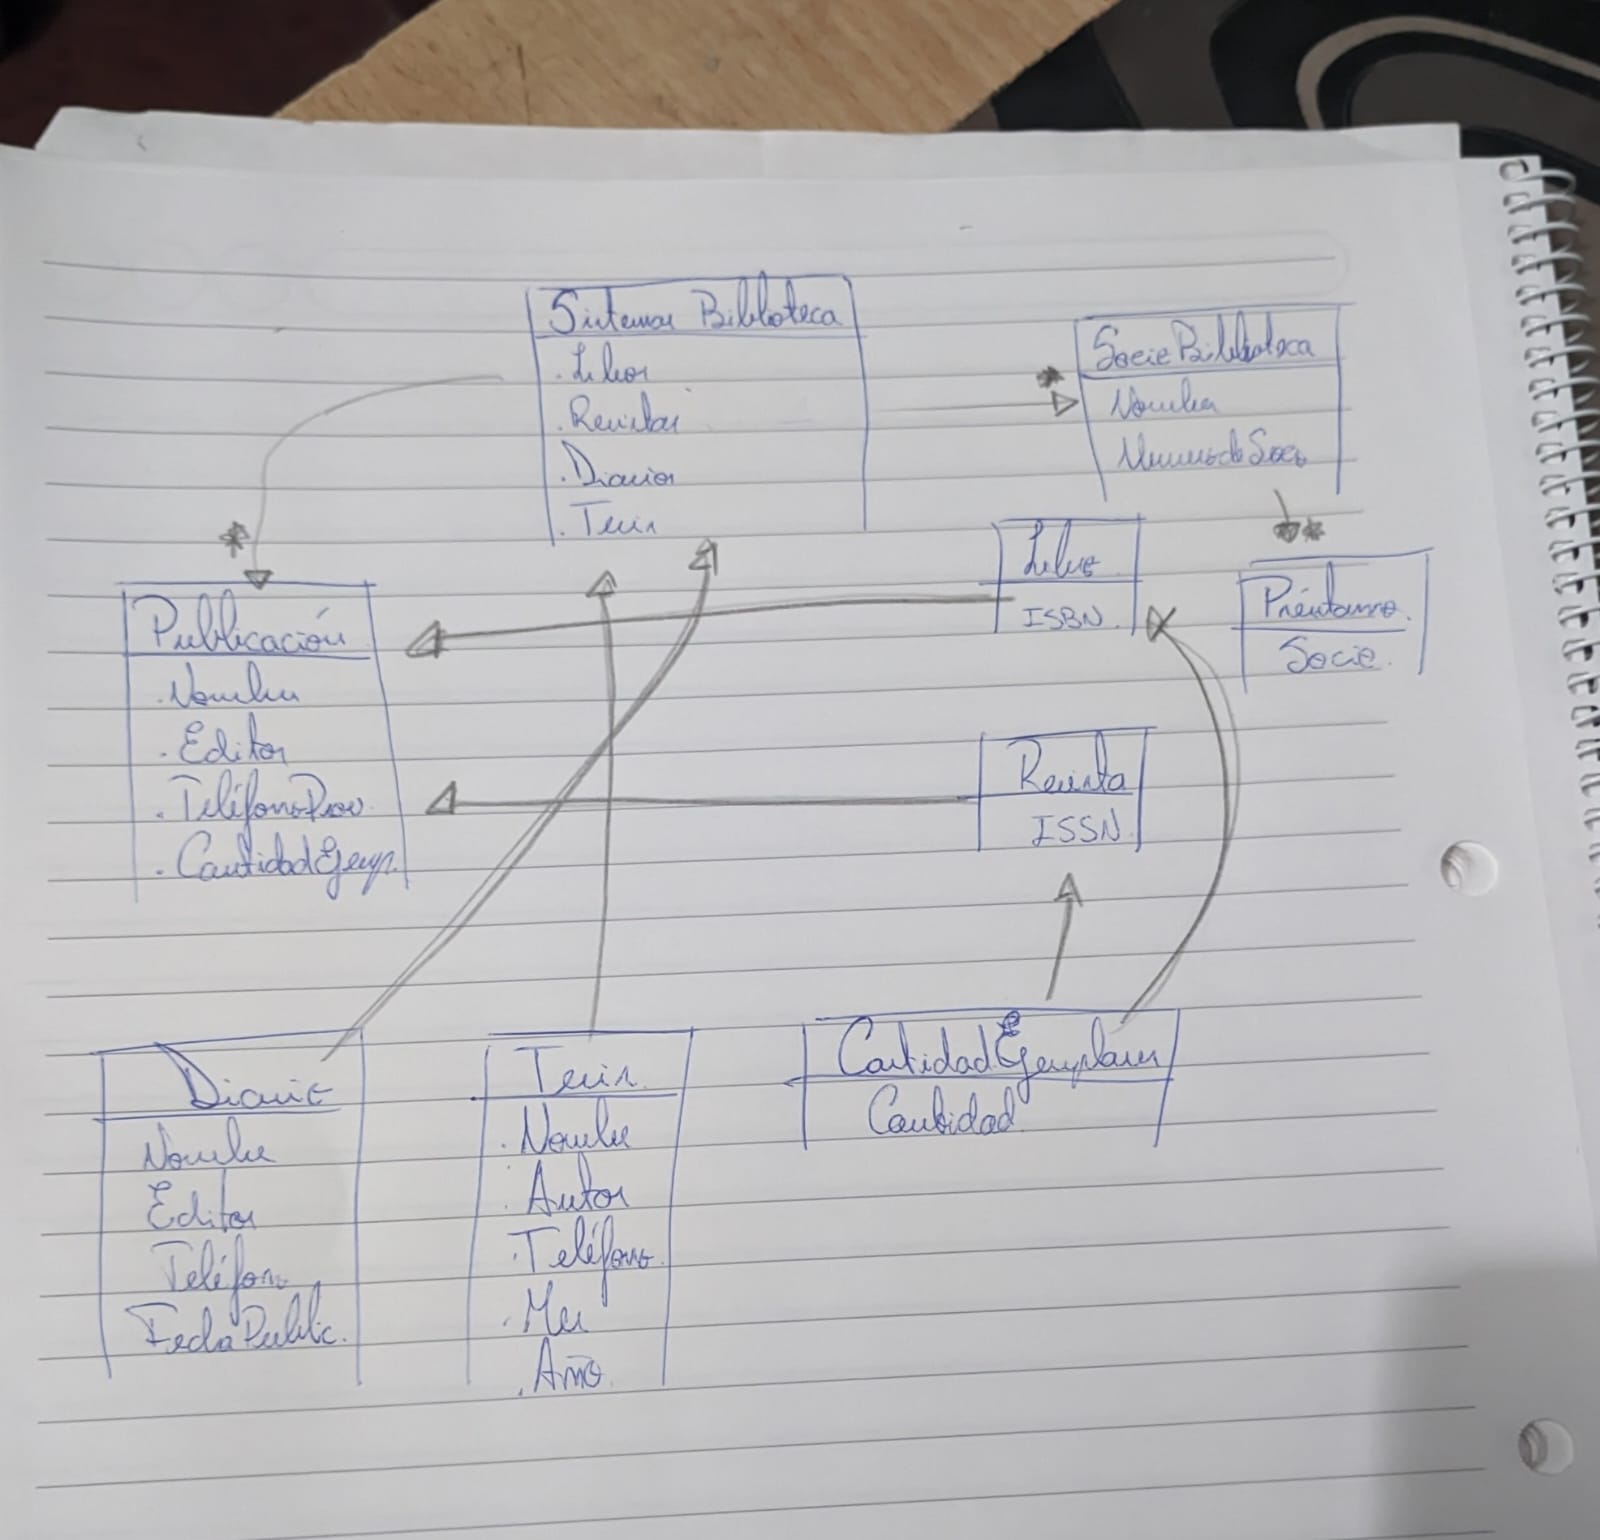 Sistemas Biblioteca
. Libros
. Revistas
. Diarios
. Tesis
Socio Biblioteca
Nombre
Numero de Socio
*
*
Publicación
. Nombre
. Editor
. TeléfonoProv.
. CantidadEjemp.
Libro
ISBN.
*
Préstamo.
Socio.
Revista
ISSN.
Diario
Nombre
Editor
Teléfono
FechaPublic.
Tesis.
. Nombre
. Autor
. Teléfono.
. Mes
. Año.
CantidadEjemplares
Cantidad